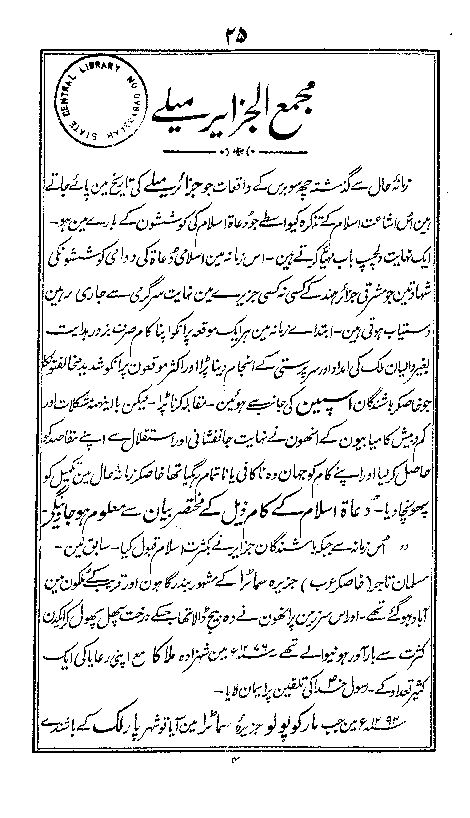 ۲۵
STATE CENTRAL LIBRARY HYDERABAD
مجمع الجزایر میلے
زمانۂ حال سے گذشتہ چھ سو برس کے واقعات جو جزائر میلے کی تاریخ مین پائے جاتے
ہین اس اشاعت اسلام کے تذکرہ کیواسطے جو دعاۃ اسلام کی کوششون کے بارے مین ہو۔
ایک نہایت دلچسپ باب مہیا کرتے ہین۔ اس زمانہ مین اسلامی دعاۃ کی دوامی کوششونکی
شہادتین جو مشرقی جزائر ہند کے کسی نہ کسی جزیرے مین نہایت سرگرمی سے جاری رہین
دستیاب ہوتی ہین۔ ابتداے زمانہ مین ہر ایک موقعہ پر انکو اپنا کام صرف بزور ہدایت
بغیر والیان ملک کی امداد اور سرپرستی کے انجام دینا پڑا اور اکثر موقعون پر انکو شدید مخالفتونکا
جو خاصکر باشندگان اسپین کی جانب سے ہوئین۔ مقابلہ کرنا پڑا۔ لیکن با اینہمہ مشکلات اور
کم و بیش کامیابیون کے انھون نے نہایت جانفشانی اور استقلال سے اپنے مقاصد کو
حاصل کر لیا اور اپنے کام کو جہان وہ ناکافی یا ناتمام رہگیا تھا خاصکر زمانہ حال مین تکمیل کو
پھونچا دیا۔ دعاۃ اسلام کے کام ذیل کے مختصر بیان سے معلوم ہو جاوینگے۔
اس زمانہ سے جبکہ باشندگان جزایر نے بکثرت اسلام قبول کیا۔ سابق مین۔
مسلمان تاجر (خاصکر عرب) جزیرہ سماٹرا کے مشہور بندرگاہون اور قریب کے ملکون مین
آباد ہو گئے تھے۔ اور اس سرزمین پر انھون نے وہ بیج ڈالا تھا جسکے درخت پھل پھول کر آیندہ
کثرت سے بارآور ہونیوالے تھے۔ ۱۲۷۶ء مین شہزادہ ملاکا مع اپنی رعایا کی ایک
کثیر تعداد کے۔ رسول خدا کی تلقین پر ایمان لایا۔
۱۲۹۲ء مین جب مارکو پولو جزیرۂ سماٹرا مین آیا تو شہر پارلک کے باشندے